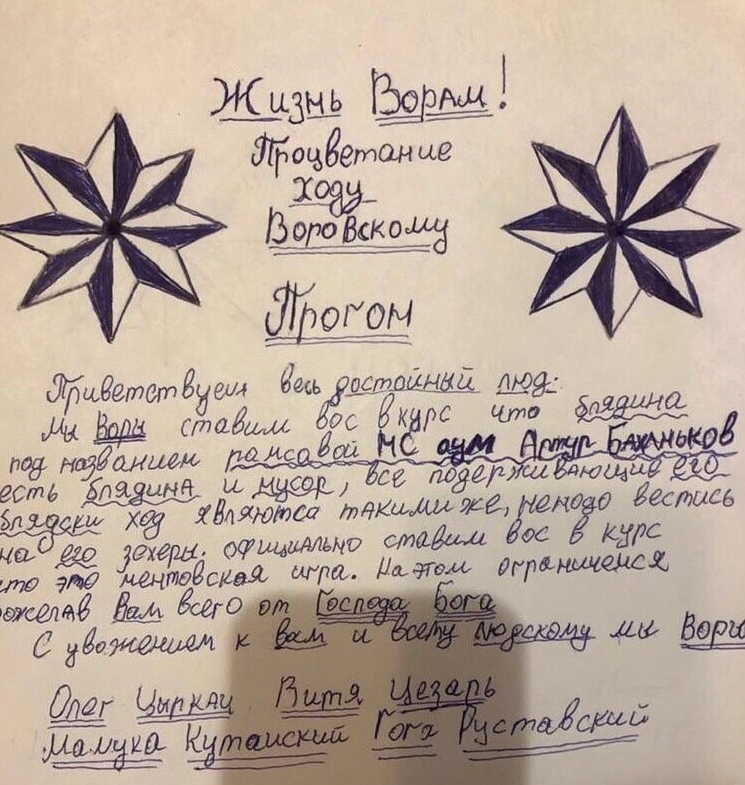 Жизнь Ворам!
Процветание
Ходу
Воровскому
Прогон
Приветствуем весь достойный люд:
Мы Воры ставим вос в курс что блядина
под названием рамсавой МС аум Артур Баханьков
есть блядина и мусор, все подерживающие его
блядски ход являются такими же, ненадо вестись
на его зехеры. официально ставим вос в курс
что это ментовская игра. На этом ограничемся
пожелав Вам всего от Господа Бога
С уважением к вам и всему людскому мы Воры
Олег Цыркач Витя Цезарь
Мамука Кутаиский Гога Руставский